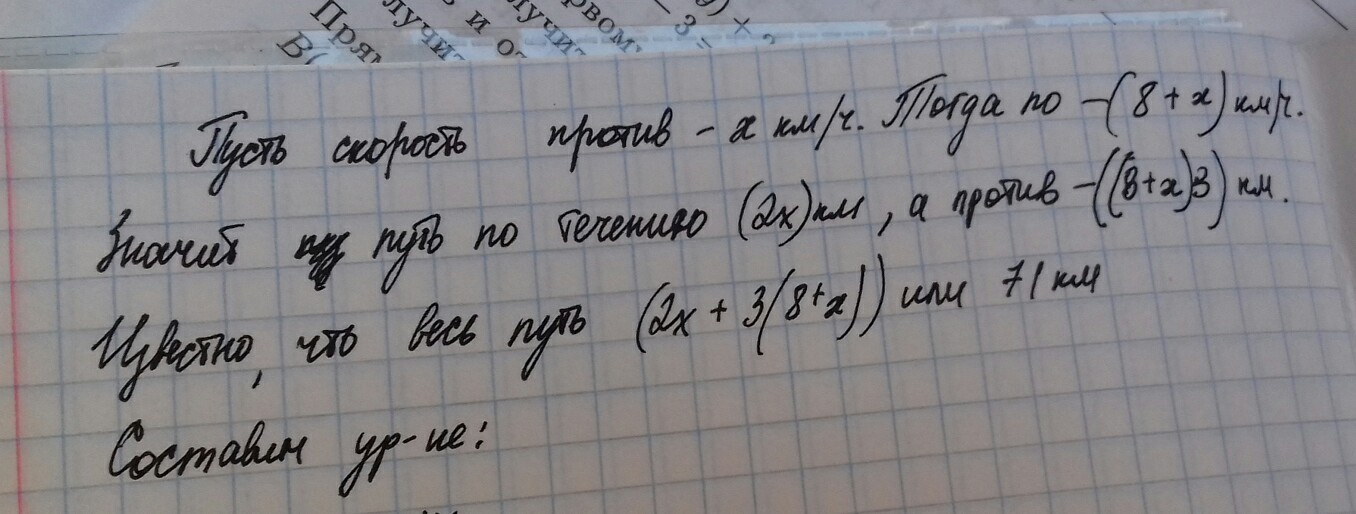 Прям
В(
лучит
ь и от
лучит
рвом
– 3 =
) +
Пусть скорость против – x км/ч. Тогда по – (8 + x) км/ч.
Значит путь по течению (2x) км, а против – ((8+x)3) км.
Известно, что весь путь (2x + 3(8+x)) или 71 км
Составим ур-ие: